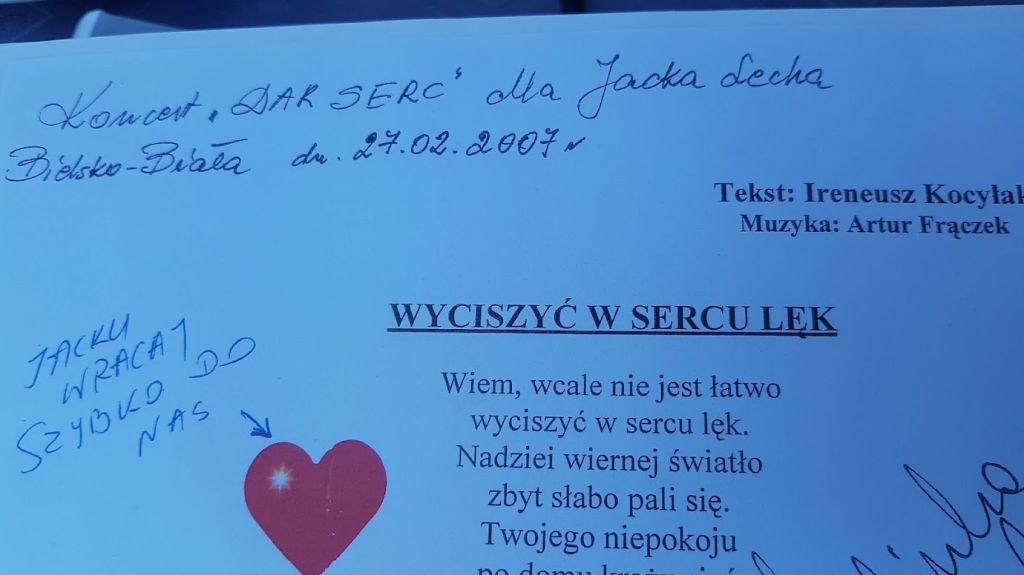 Koncert „DAR SERC" dla Jacka Lecha
Bielsko-Biała dn. 27.02.2007 r
Tekst: Ireneusz Kocyłak
Muzyka: Artur Frączek
WYCISZYĆ W SERCU LĘK
JACKU
WRACAJ
SZYBKO DO
NAS
Wiem, wcale nie jest łatwo
wyciszyć w sercu lęk.
Nadziei wiernej światło
zbyt słabo pali się.
Twojego niepokoju
po domu